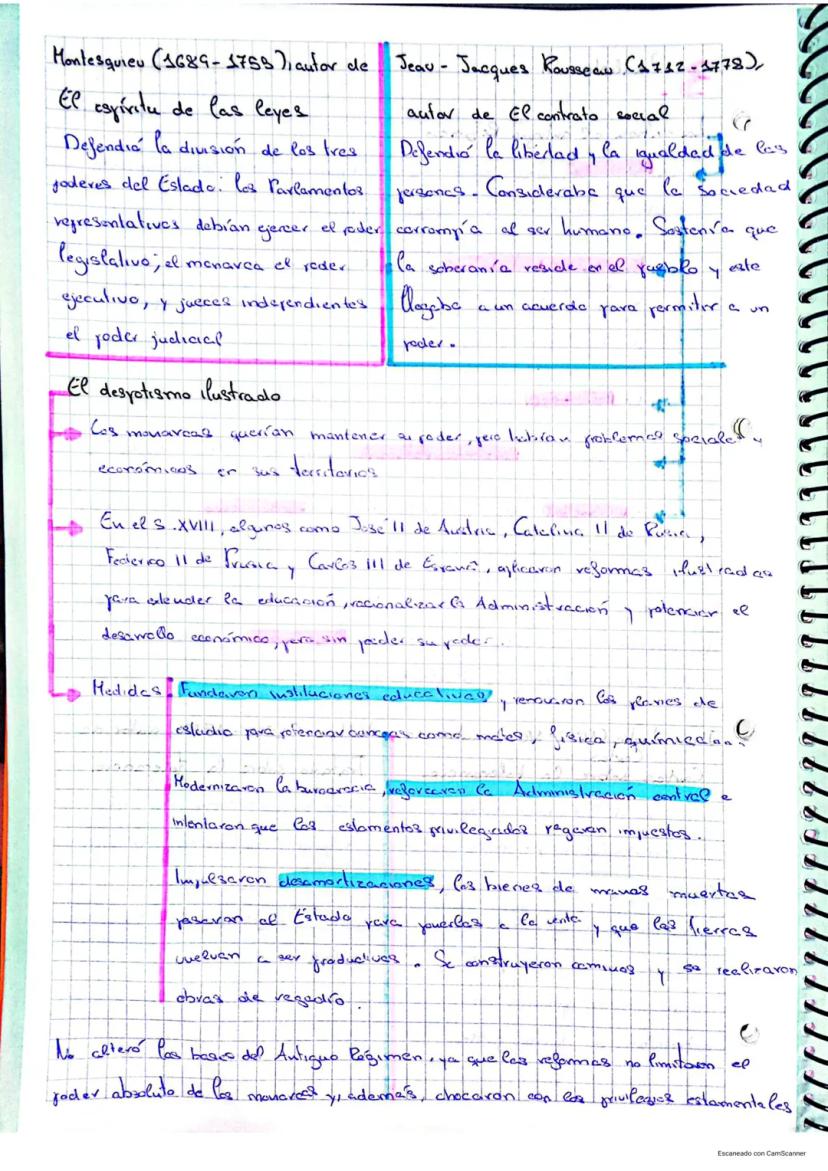 Montesquieu (1689-1755), autor de
El espíritu de las leyes
Defendió la división de los tres
poderes del Estado: los Parlamentos
representativos debían ejercer el poder
legislativo; el monarca el poder
ejecutivo, y jueces independientes
el poder judicial
Jean-Jacques Rousseau (1712-1778),
autor de El contrato social
Defendió la libertad y la igualdad de las
personas. Consideraba que la sociedad
corrompía al ser humano. Sostenía que
la soberanía reside en el pueblo y este
llegaba a un acuerdo para permitir a un
poder.
El despotismo ilustrado
Los monarcas querían mantener su poder, pero habían problemas sociales y
económicos en sus territorios
En el s. XVIII, algunos como José II de Austria, Catalina II de Rusia,
Federico II de Prusia y Carlos III de España, aplicaron reformas ilustradas
para extender la educación, racionalizar la Administración y potenciar el
desarrollo económico, pero sin perder su poder.
Medidas Fundaron instituciones educativas, y renovaron los planes de
estudio para potenciar ciencias como mates, física, química...
Modernizaron la burocracia, reforzaron la Administración central e
intentaron que los estamentos privilegiados pagaran impuestos.
Impulsaron desamortizaciones, los bienes de manos muertas
pasaron al Estado para ponerlas a la venta y que las tierras
vuelvan a ser productivas. Se construyeron caminos y se realizaron
obras de regadío.
No alteró las bases del Antiguo Régimen, ya que las reformas no limitaron el
poder absoluto de los monarcas y, además, chocaron con los privilegios estamentales
Escaneado con CamScanner